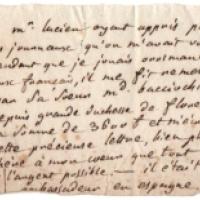 m. lucien ayant appris p
journaux qu'on m'avait vo
pendant que je jouais orosmane
aux français, il me fit remett
par Sa Sœur md. bacciochi
depuis grande duchesse de flore
la Somme de 3600 f et m'écri
cette précieuse lettre, bien plus
chère à mon cœur que tout
l'argent possible. — il était
ambassadeur en espagne